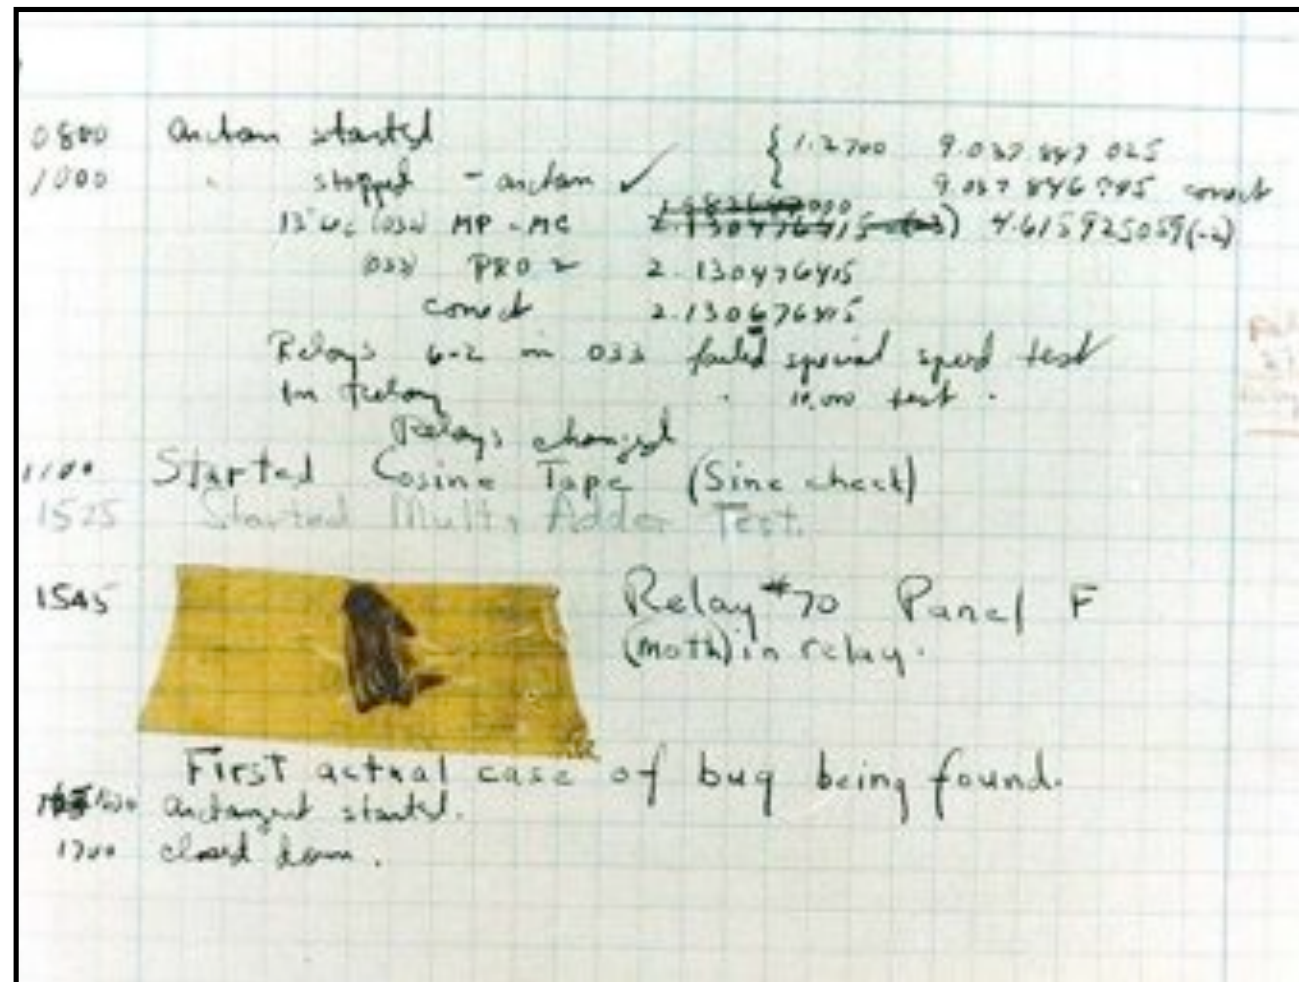 0800 Antan started
1000 " stopped - antan ✓ { 1.2700 9.037 847 025
9.037 846 995 correct
13"uc (032) MP - MC 2.130476415 (-3) 4.615925059(-2)
(033) PRO 2 2.130476415
correct 2.130676415
Relays 6-2 in 033 failed special speed test
In Relay " 10,000 test .
Relays changed
1100 Started Cosine Tape (Sine check)
1525 Started Mult+ Adder Test.
1545 Relay #70 Panel F
(moth) in relay.
First actual case of bug being found.
1630 antangent started.
1700 closed down.